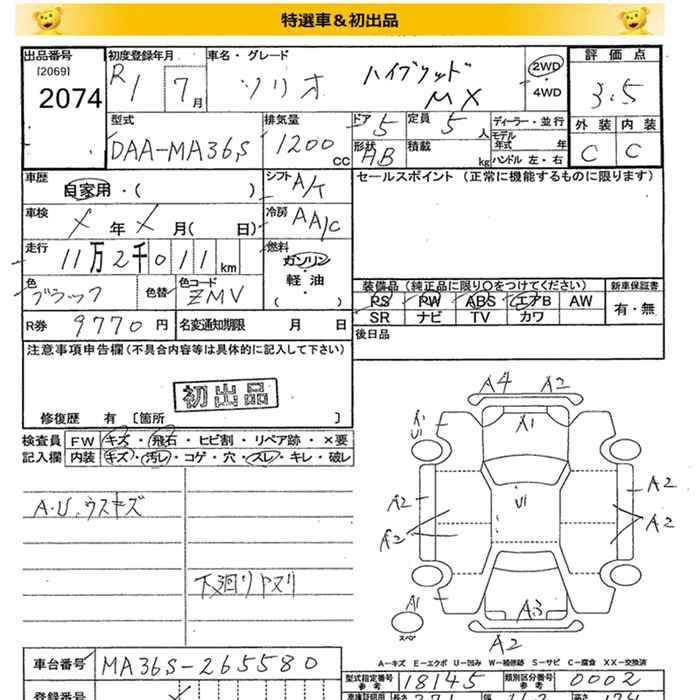 特選車＆初出品
出品番号 初度登録年月 車名・グレード 評価点
[2069] R1 7月 ソリオ ハイブリッド MX 2WD・4WD 3.5
2074
型式 排気量 ドア 5 定員 5人 ディーラー・並行 外装 内装
DAA-MA36S 1200cc 形状 AB 積載 kg モデル年式 年 C C
ハンドル 左・右
車歴 自家用・( ) シフト A/T セールスポイント（正常に機能するものに限ります）
車検 メ年 メ月( 日) 冷房 AA/C
走行 11万2千011km 燃料 ガソリン・軽油・( )
色 ブラック 色替 色コード ZMV 装備品（純正品に限り○をつけてください） 新車保証書
PS PW ABS エアB AW 有・無
R券 9770円 名変通知期限 月 日 SR ナビ TV カワ
注意事項申告欄（不具合内容等は具体的に記入して下さい） 後日品
初出品
修復歴 有〔箇所 〕
検査員 FW キズ・飛石・ヒビ割・リペア跡・×要
記入欄 内装 キズ・汚レ・コゲ・穴・スレ・キレ・破レ
A4 A2
A1
U1
A.U.ウスキズ
A2 U1 A2
A2 A2
下廻りヤスリ
A1 A3
スペア
A2
A－キズ E－エクボ U－凹み W－補修跡 S－サビ C－腐食 XX－交換済
車台番号 MA36S-265580
型式指定番号 参考 18145 類別区分番号 参考 0002